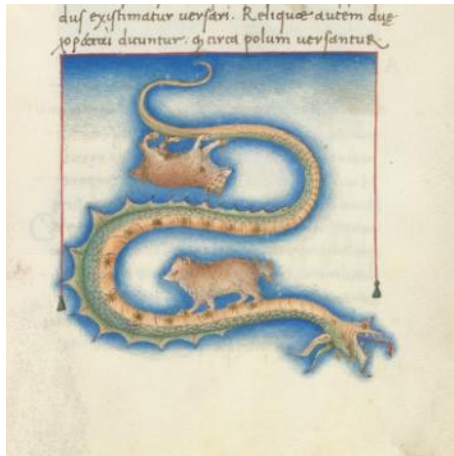 dus existimatur versari. Reliquæ autem duę
dicuntur. q circa polum versantur